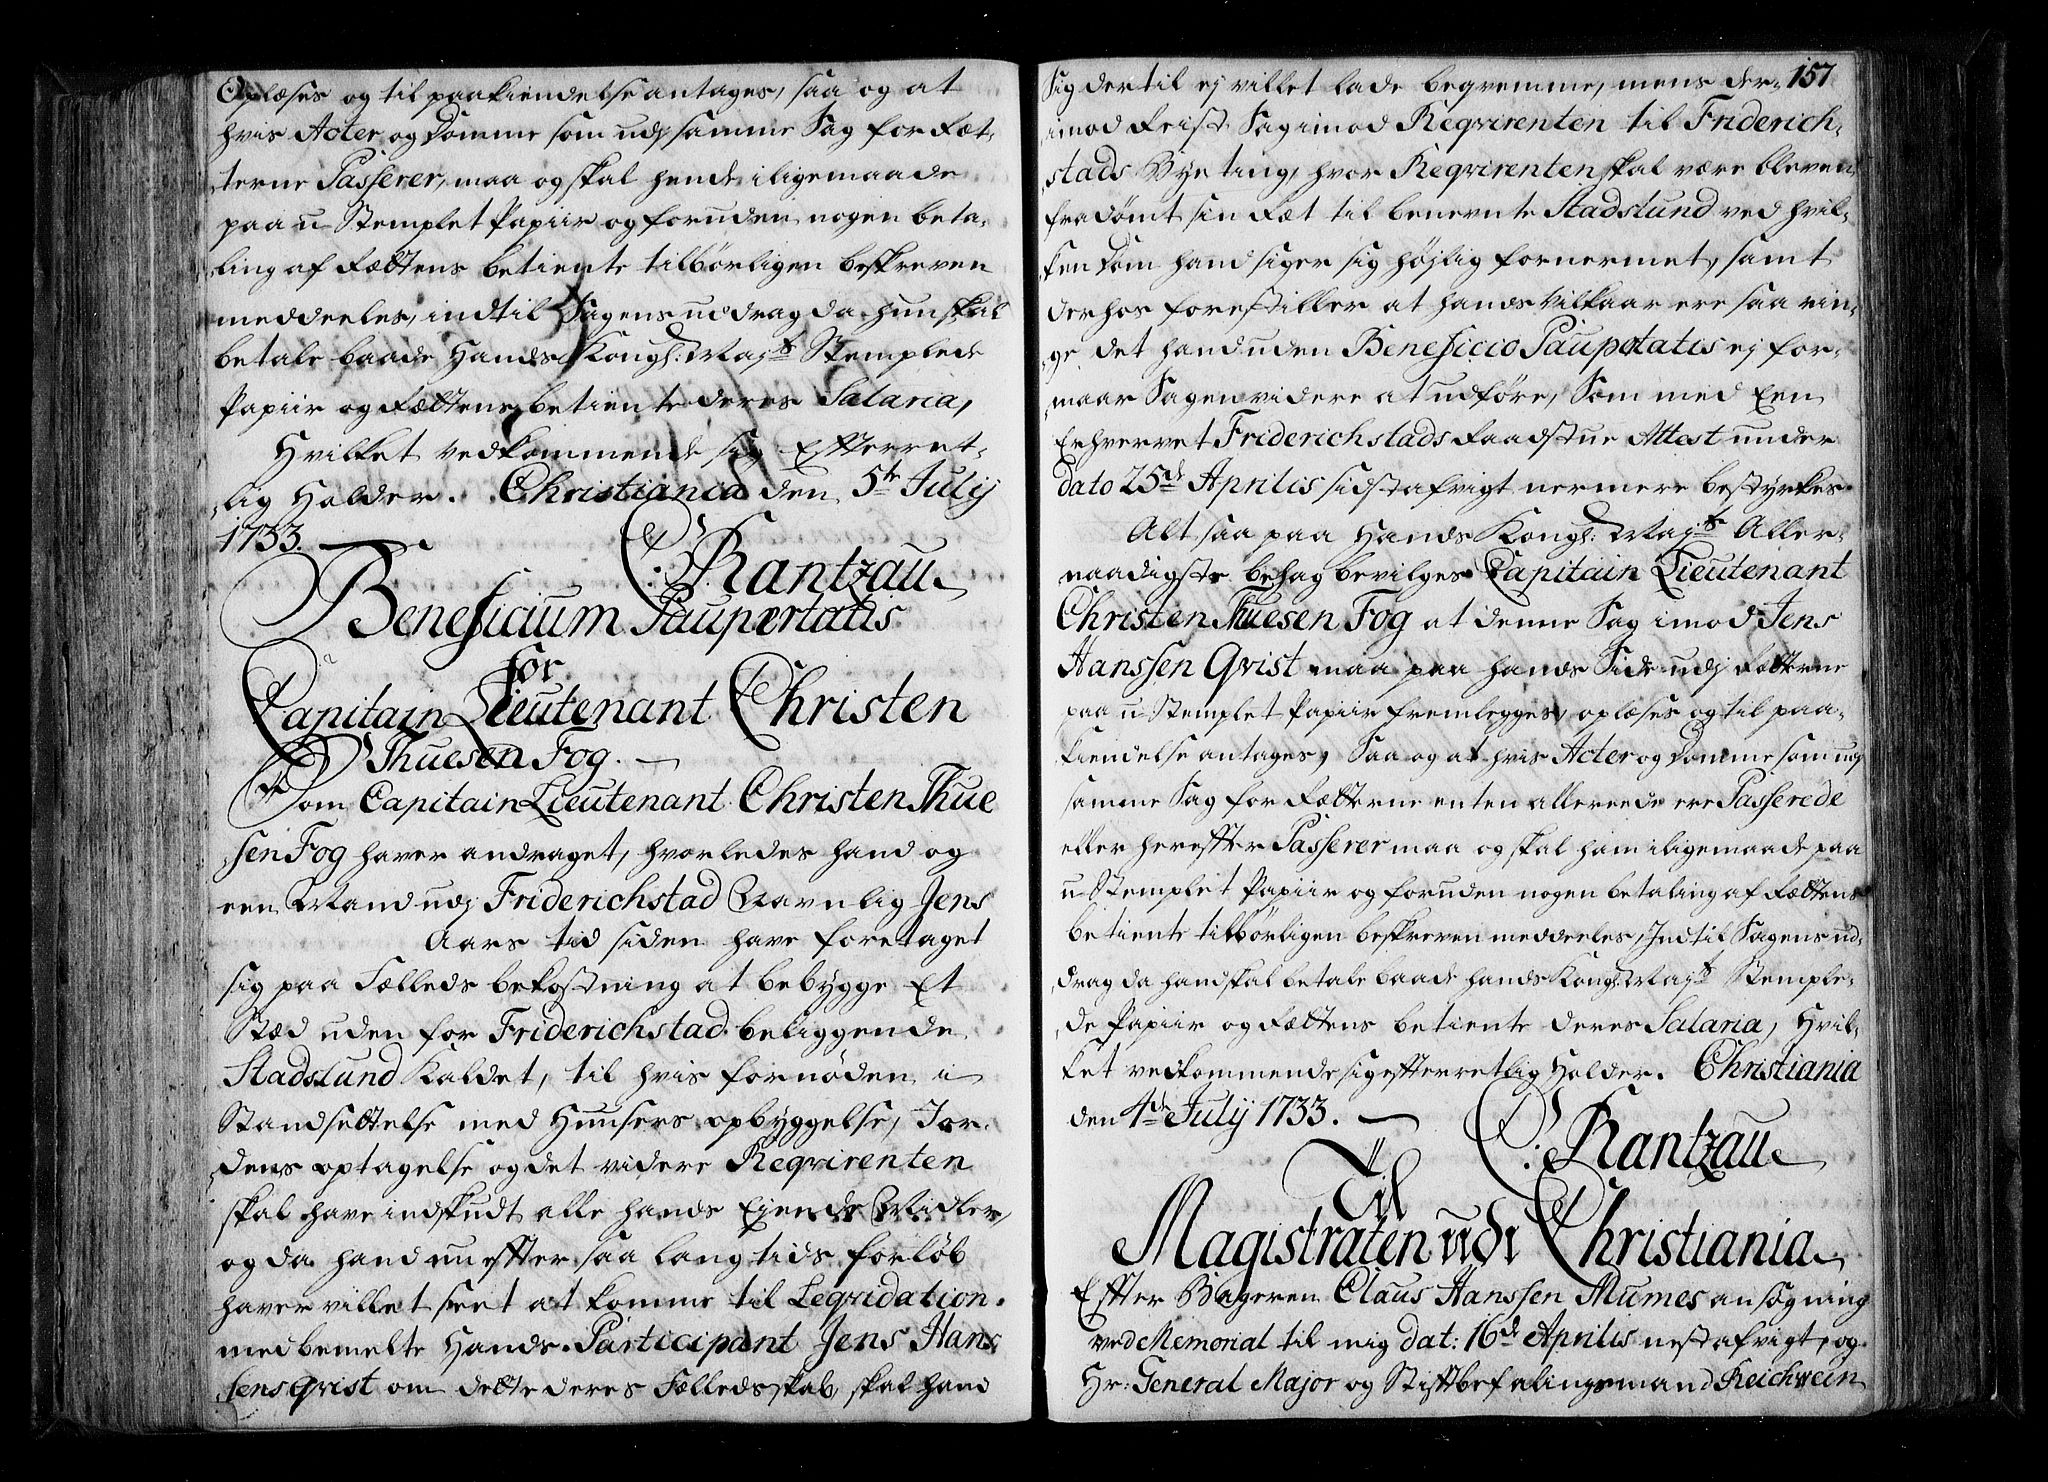 Oplæses og til paakiendelse antages, saa og at
hvis Acter og Domme som udj samme Sag for Ræt-
terne Passerer, maa og skal hende iligemaade
paa u-Stemplet Papiir og foruden nogen beta-
ling af Rættens betiente tilbørligen beskreven
meddeeles, indtil Sagens uddrag da hun skal
betale baade Hands Kongl: Majts Stemplede
Papiir og Rættens betiente deres Salaria,
Hvilket vedkommende sig Efterret-
lig Holder. Christiania den 5te Julij
1733.
C: Rantzau
Beneficium Paupertatis
for
Capitain Lieutenant Christen
Thuesen Fog.
Som Capitain Lieutenant Christen Thue
sen Fog haver andraget, hvorledes hand og
een Mand udj Friderichstad Navnlig Jens
Aars tid siden have foretaget
sig paa Fælleds bekostning at bebygge Et
Stæd uden for Friderichstad beliggende
Stadslund Kaldet, til hvis fornøden i
Standsættelse med Huusers opbyggelse, Jor-
dens optagelse og det videre Reqvirenten
skal have indskudt alle hands Ejende Midler,
og da hand nu efter saa lang tids forløb
haver villet seet at komme til Leqvidation
med bemelte Hands Participant Jens Hans
sen Qvist om dette deres Fælledsskab, skal hand
157
sig dertil ej villet lade beqvemme, mens der-
imod Reist Sag imod Reqvirenten til Friderich-
stads Bye ting, hvor Reqvirenten skal være bleven
fradømt sin Ræt til benevnte Stadslund ved hvil-
ken Dom hand siger sig højlig fornermet, samt
derhos forestiller at hands Vilkaar ere saa rin-
ge det hand uden Beneficio Paupertatis ej for-
maar Sagen videre at udføre, Som med Een
Erhvervet Friderichstads Raadstue Attest under
dato 25de Aprilis sidstafvigt nermere bestyrkes.
Alt saa paa Hands Kongl: Majts Aller-
naadigste behag bevilges Capitain Lieutenant
Christen Thuesen Fog at denne Sag imod Jens
Hanssen Qvist maa paa hands Side udj Rætterne
paa u-Stemplet Papiir fremlegges, oplæses og til paa-
kiendelse antages, Saa og at hvis Acter og Domme som udj
samme Sag for Rætterne enten allereede ere Passerede
eller herefter Passerer maa og skal ham iligemaade paa
u-Stemplet Papiir og foruden nogen betaling af Rættens
betiente tilbørligen beskreven meddeeles, Indtil Sagens ud-
drag da hand skal betale baade hands Kongl: Majts Stemple-
de Papiir og Rættens betiente deres Salaria, Hvil-
ket vedkommende sig efterretlig Holder. Christiania
den 4de Julij 1733.
C: Rantzau
Til
Magistraten udi Christiania
Efter Bageren Claus Hanssen Mumes ansøgning
ved Memorial til mig dat: 16de Aprilis nestafvigt, og
Hr: General Major og Stiftbefalingsmand Reichwein